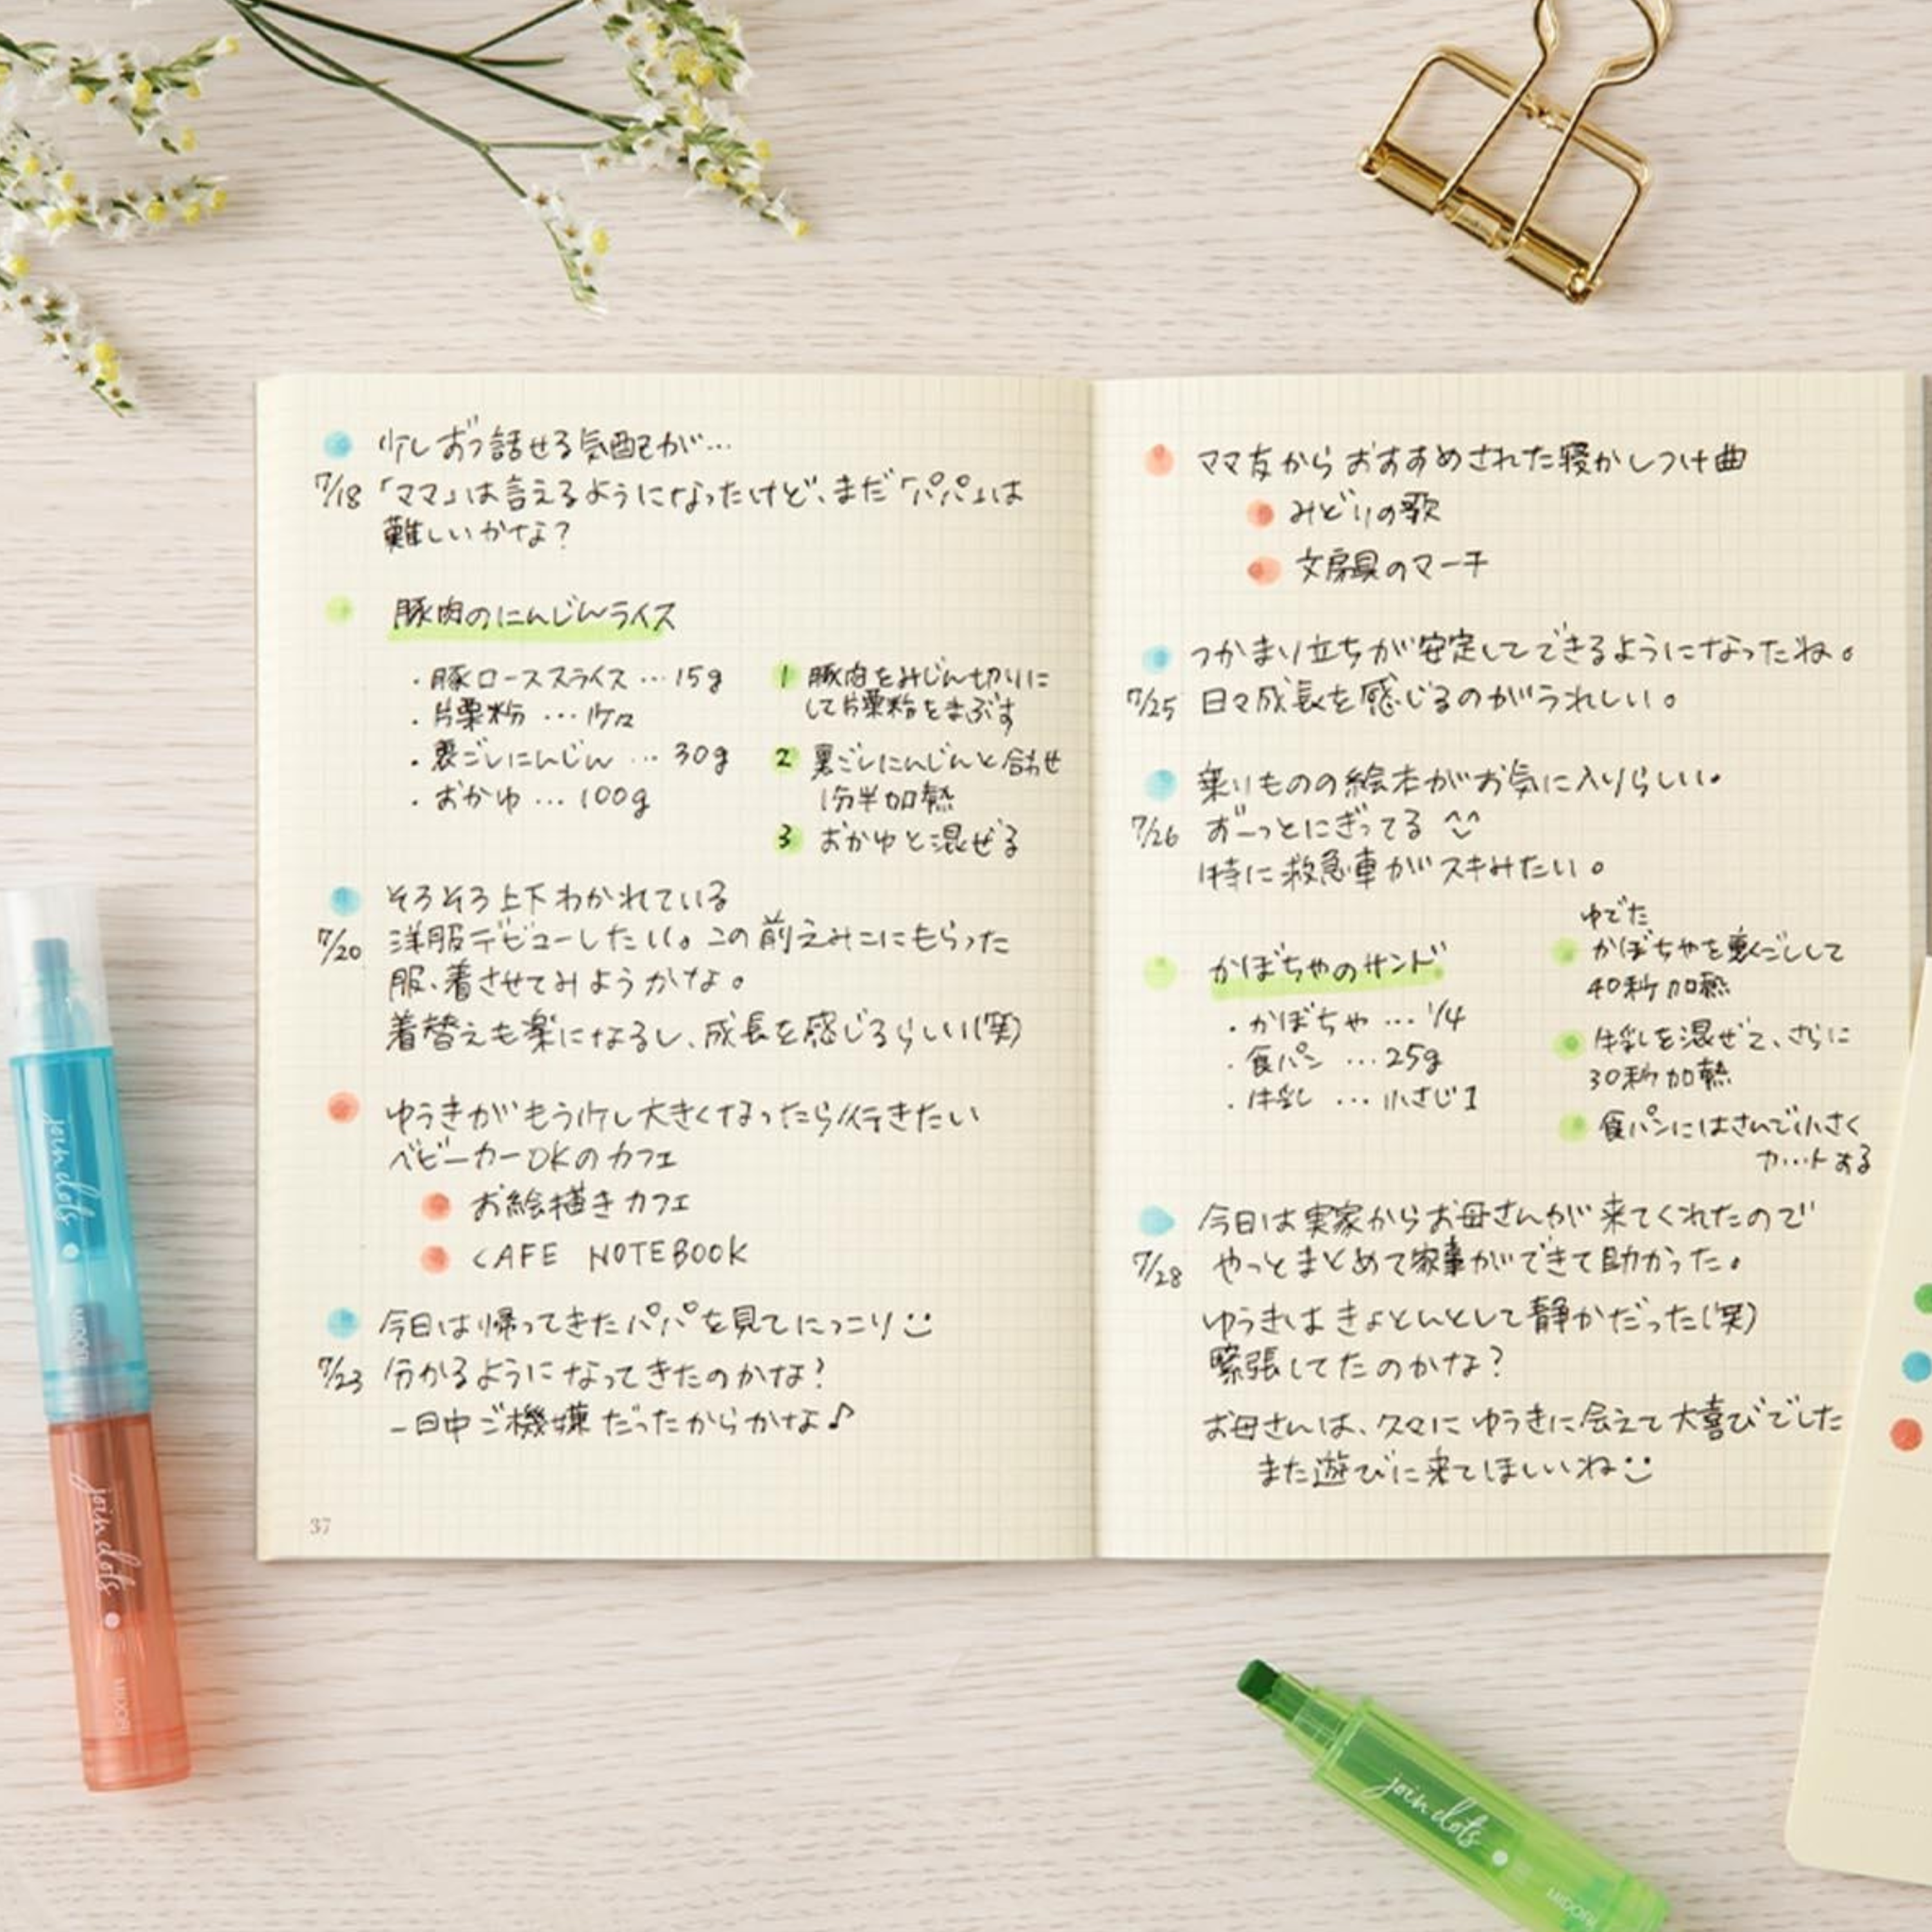 少しずつ話せる気配が…
7/18 「ママ」は言えるようになったけど、まだ「パパ」は
難しいかな？
豚肉のにんじんライス
・豚ローススライス … 15g
・片栗粉 … 少々
・裏ごしにんじん … 30g
・おかゆ … 100g
1 豚肉をみじん切りに
して片栗粉をまぶす
2 裏ごしにんじんと合わせ
1分半加熱
3 おかゆと混ぜる
そろそろ上下わかれている
7/20 洋服デビューしたい。この前えみこにもらった
服、着させてみようかな。
着替えも楽になるし、成長を感じるらしい(笑)
ゆうきがもう少し大きくなったら行きたい
ベビーカーOKのカフェ
お絵描きカフェ
CAFE NOTEBOOK
今日は帰ってきたパパを見てにっこり
7/23 分かるようになってきたのかな？
一日中ご機嫌だったからかな♪
37
ママ友からおすすめされた寝かしつけ曲
みどりの歌
文房具のマーチ
つかまり立ちが安定してできるようになったね。
7/25 日々成長を感じるのがうれしい。
乗りものの絵本がお気に入りらしい。
7/26 ずーっとにぎってる ^^
特に救急車がスキみたい。
かぼちゃのサンド
・かぼちゃ … 1/4
・食パン … 25g
・牛乳 … 小さじ1
ゆでた
かぼちゃを裏ごしして
40秒加熱
牛乳を混ぜて、さらに
30秒加熱
食パンにはさんで小さく
カットする
今日は実家からお母さんが来てくれたので
7/28 やっとまとめて家事ができて助かった。
ゆうきはきょとんとして静かだった(笑)
緊張してたのかな？
お母さんは、久々にゆうきに会えて大喜びでした
また遊びに来てほしいね
join dots
MIDORI
join dots
MIDORI
join dots
MIDORI